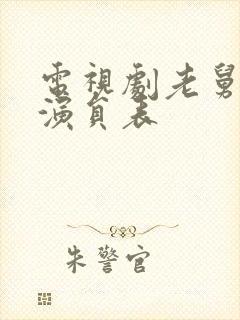 電視劇老舅
演員表
朱警官